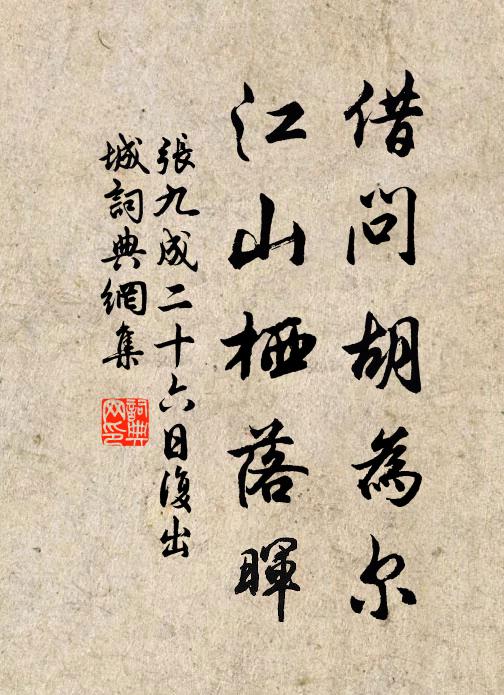 借問胡為尔
江山栖落暉
張九成二十六日復出
城詞典網集
詞典
网印